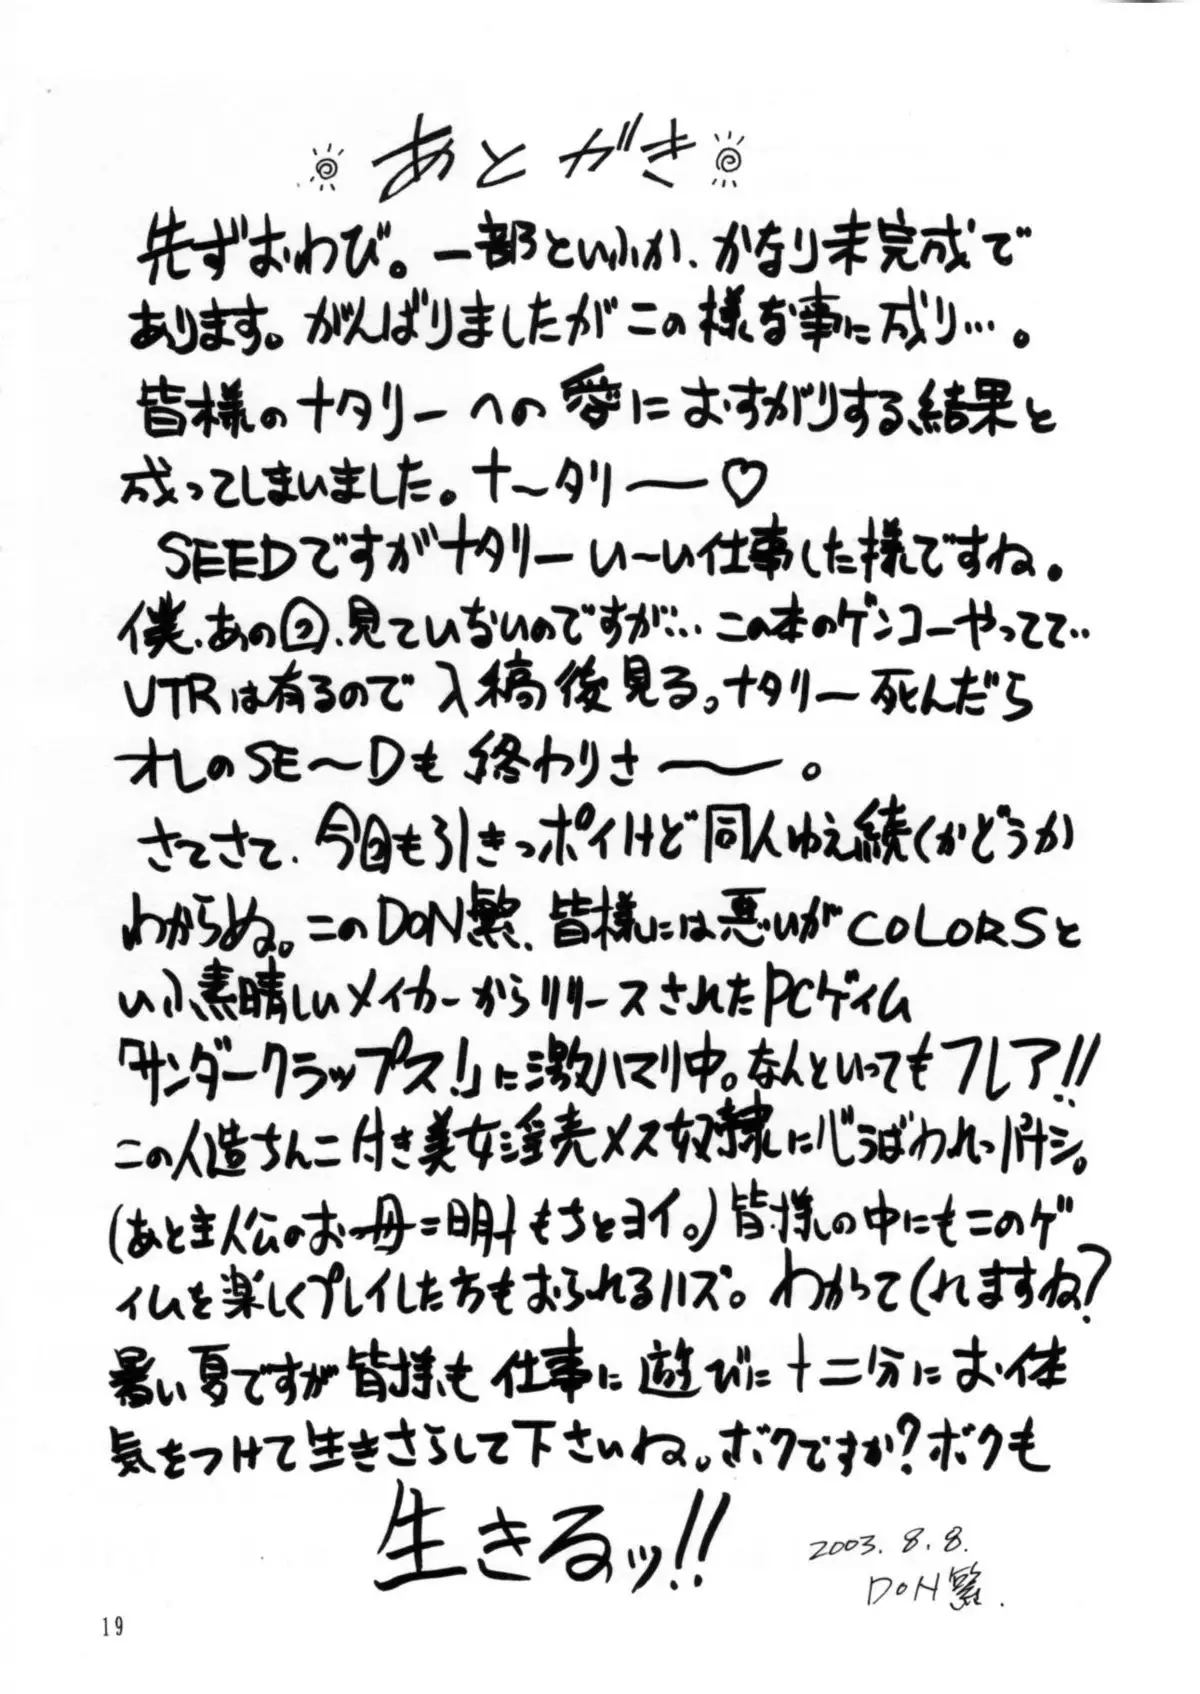 あとがき
先ずおわび。一部といふか、かなり未完成で
あります。がんばりましたがこの様な事に成り…。
皆様のナタリーへの愛におすがりする結果と
成ってしまいました。ナ〜タリ──♡
SEEDですがナタリーい〜い仕事した様ですね。
僕、あの回、見ていないのですが… この本のゲンコーやってて‥
VTRは有るので入稿後見る。ナタリー死んだら
オレのSE〜Dも終わりさ──。
さてさて、今回も引きっポイけど同人ゆえ続くかどうか
わからぬ。このDoN繁、皆様には悪いがCOLORSと
いふ素晴しいメイカーからリリースされたPCゲイム
「サンダークラップス!」に激ハマリ中。なんといってもフレア!!
この人造ちんこ付き美女淫売メス奴隷に心うばわれっパナシ。
(あと主人公のお母=明もちとヨイ。)皆様の中にもこのゲ
ィムを楽しくプレイした方もおられるハズ。わかってくれますね?
暑い夏ですが皆様も仕事に遊びに十二分にお体
気をつけて生きさらして下さいね。ボクですか?ボクも
生きるッ!!
2003.8.8.
DoN繁.
19